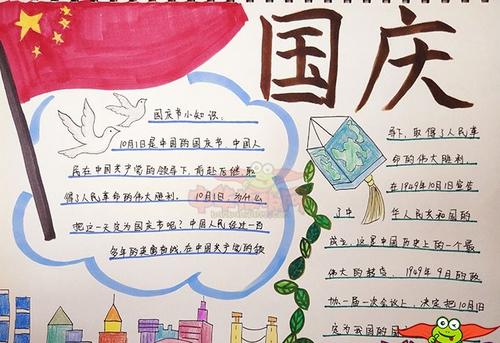 国庆
国庆节小知识。
10月1日是中国的国庆节。中国人
民在中国共产党的领导下，前赴后继取
得了人民革命的伟大胜利。10月1日，为什么
把这一天定为国庆节呢？中国人民经过一百
多年的英勇奋战，在中国共产党的领
导下，取得了人民革
命的伟大胜利。
在1949年10月1日宣告
了中华人民共和国的
成立，这是中国历史上的一个最
伟大的转变。1949年9月的政
协一届一次会议上，决定把10月1日
定为我国的国